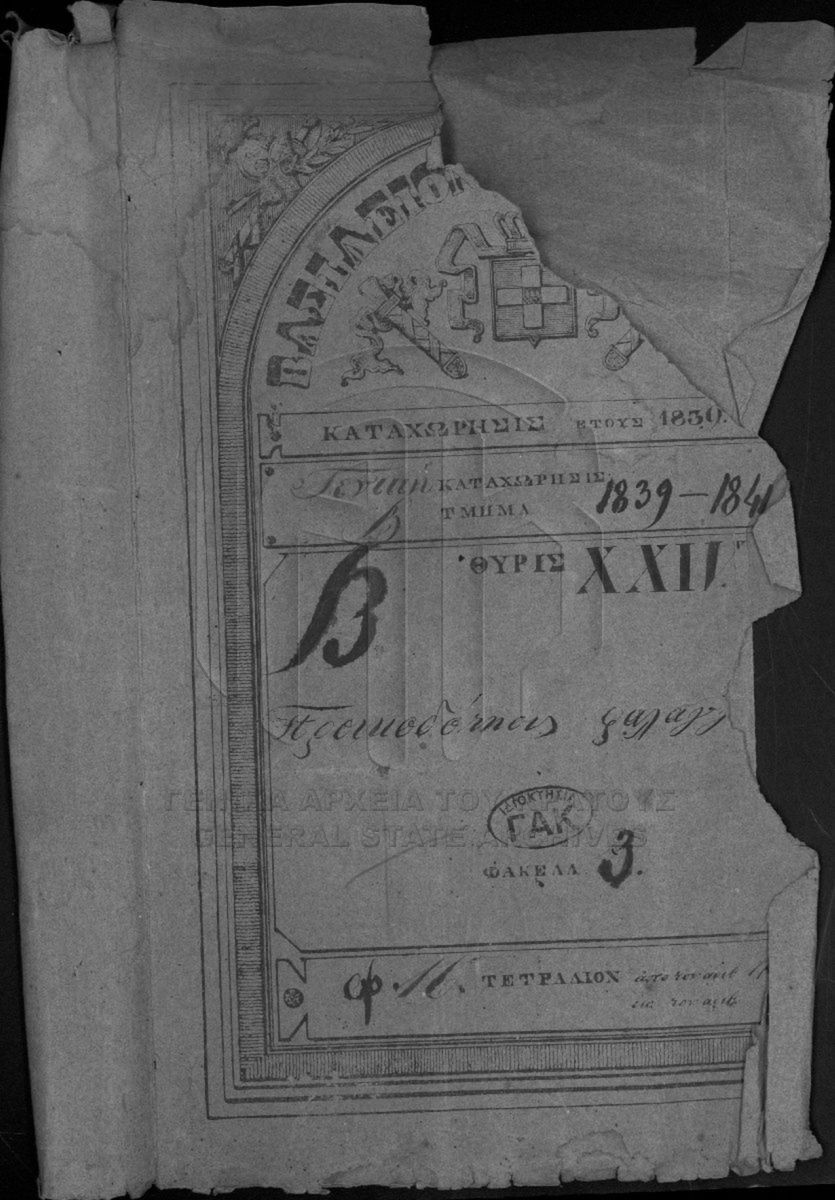 ΒΑΣΙΛΕΙΟΝ
ΚΑΤΑΧΩΡΗΣΙΣ ΕΤΟΥΣ 1830.
Γενικὴ ΚΑΤΑΧΩΡΗΣΙΣ
ΤΜΗΜΑ 1839-184
Β
ΘΥΡΙΣ XXII
Β
Προικοδότησις φαλαγγ
ΓΕΝΙΚΑ ΑΡΧΕΙΑ ΤΟΥ ΚΡΑΤΟΥΣ
GENERAL STATE ARCHIVES
ΙΔΙΟΚΤΗΣΙΑ
ΓΑΚ
ΦΑΚΕΛΛ 3.
φ ΤΕΤΡΑΔΙΟΝ